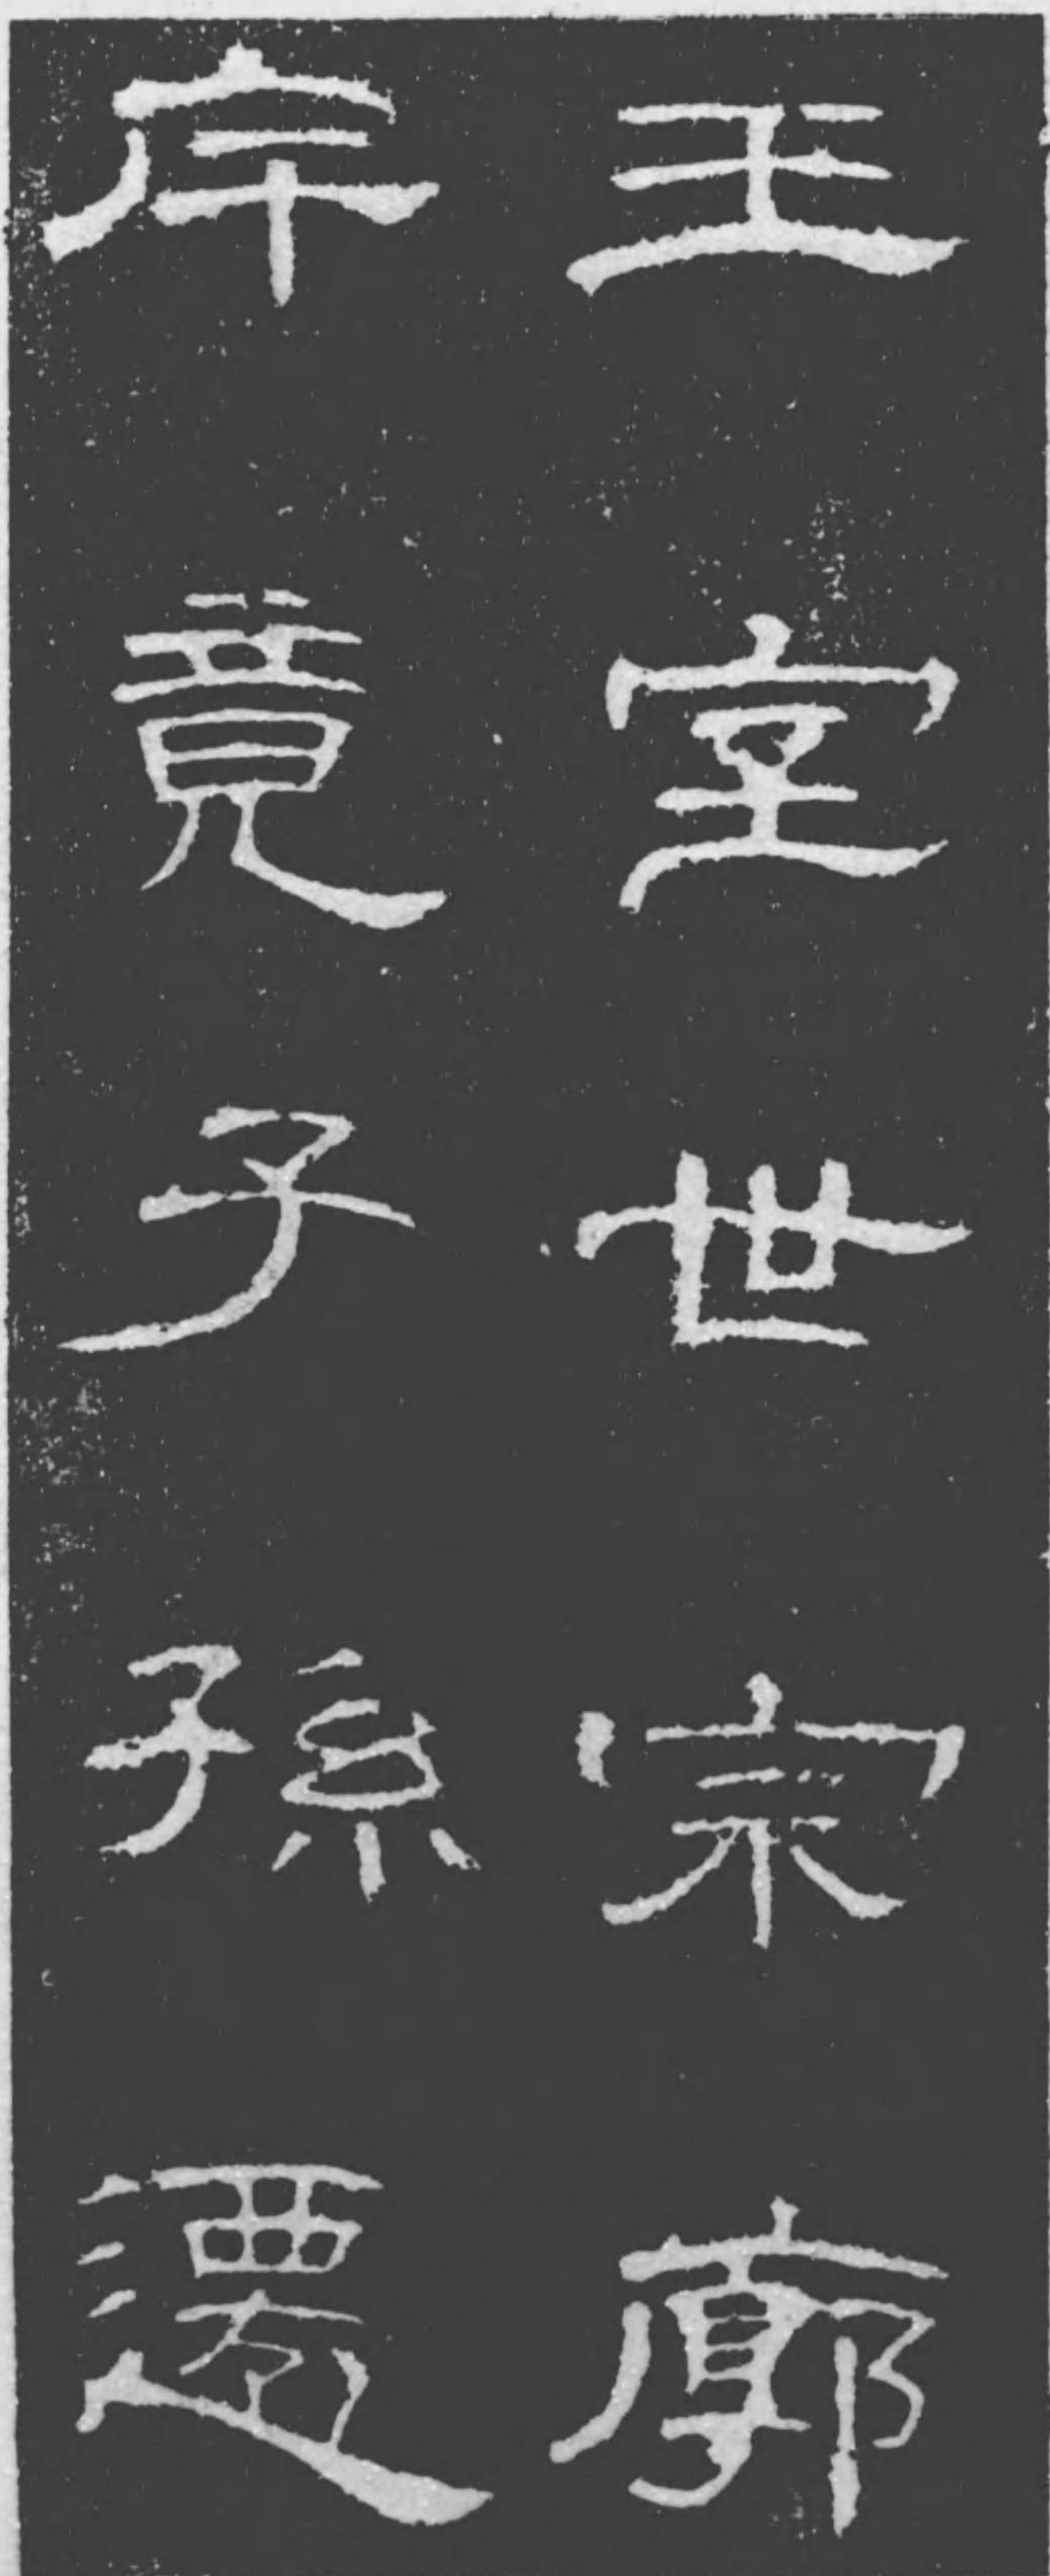 王室世宗廓
斥竟子孫遷